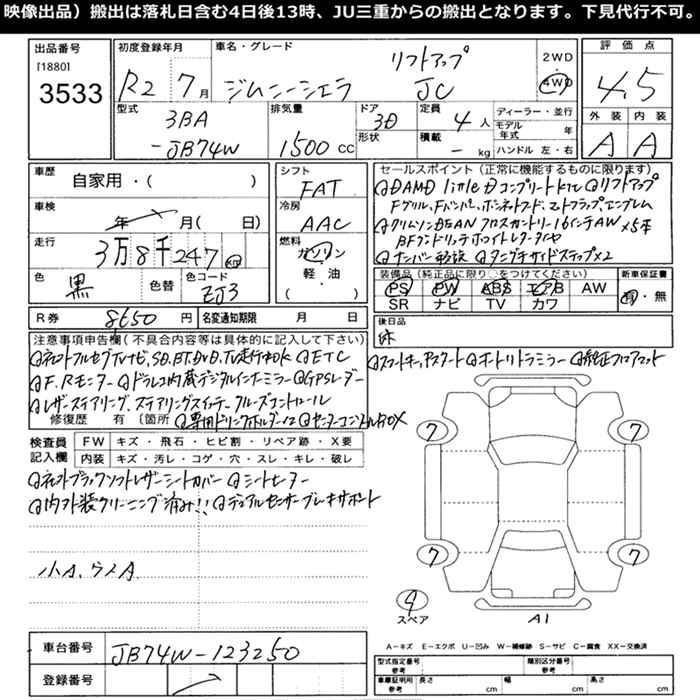 映像出品）搬出は落札日含む4日後13時、JU三重からの搬出となります。下見代行不可。
出品番号 [1880] 3533
初度登録年月 R2 7月
車名・グレード リフトアップ ジムニーシエラ JC
2WD ・ 4WD
評価点 4.5
外装 内装
A A
型式 3BA -JB74W
排気量 1500 cc
ドア 3D 形状
定員 4人 積載 - kg
ディーラー・並行
モデル年式 年
ハンドル 左・右
車歴 自家用・( )
車検 年 月( 日)
走行 3万8千247 km
色 黒 色替 色コード ZJ3
シフト FAT
冷房 AAC
燃料 ガソリン 軽・油 ( )
R券 8650円 名変通知期限 月 日
セールスポイント（正常に機能するものに限ります）
DAMD little D コンプリートキット リフトアップ
Fグリル、Fバンパー、ボンネットフード、エンブレム
クリムソンDEAN クロスカントリー16インチAW×5本
BFグッドリッチホワイトレタータイヤ
ナンバー移設 タニグチサイドステップ×2
装備品（純正品に限り○をつけてください）
PS PW ABS エアB AW
SR ナビ TV カワ
新車保証書 有・無
後日品
注意事項申告欄(不具合内容等は具体的に記入して下さい)
社外フルセグTVナビ、SD、BT、DVD、TV走行中OK ETC
F.Rモニター ドラレコ内蔵デジタルインナーミラー GPSレーダー
レザーステアリング、ステアリングスイッチ クルーズコントロール
修復歴 有 (箇所 専用ドリンクホルダー×2 センターコンソールBOX
スマートキー、プッシュスタート オートリトラミラー 純正フロアマット
検査員記入欄
FW キズ・飛石・ヒビ割・リペア跡・X要
内装 キズ・汚レ・コゲ・穴・スレ・キレ・破レ
社外ブラックソフトレザーシートカバー シートヒーター
内外装クリーニング済み!! デュアルセンサーブレーキサポート
小A、ウスA
7 7
7 7
スペア
A1
車台番号 JB74W-123250
登録番号
A-キズ E-エクボ U-凹み W-補修跡 S-サビ C-腐食 XX-交換済
型式指定番号 参考 類別区分番号 参考
車庫証明用 参考 長さ cm 幅 cm 高さ cm